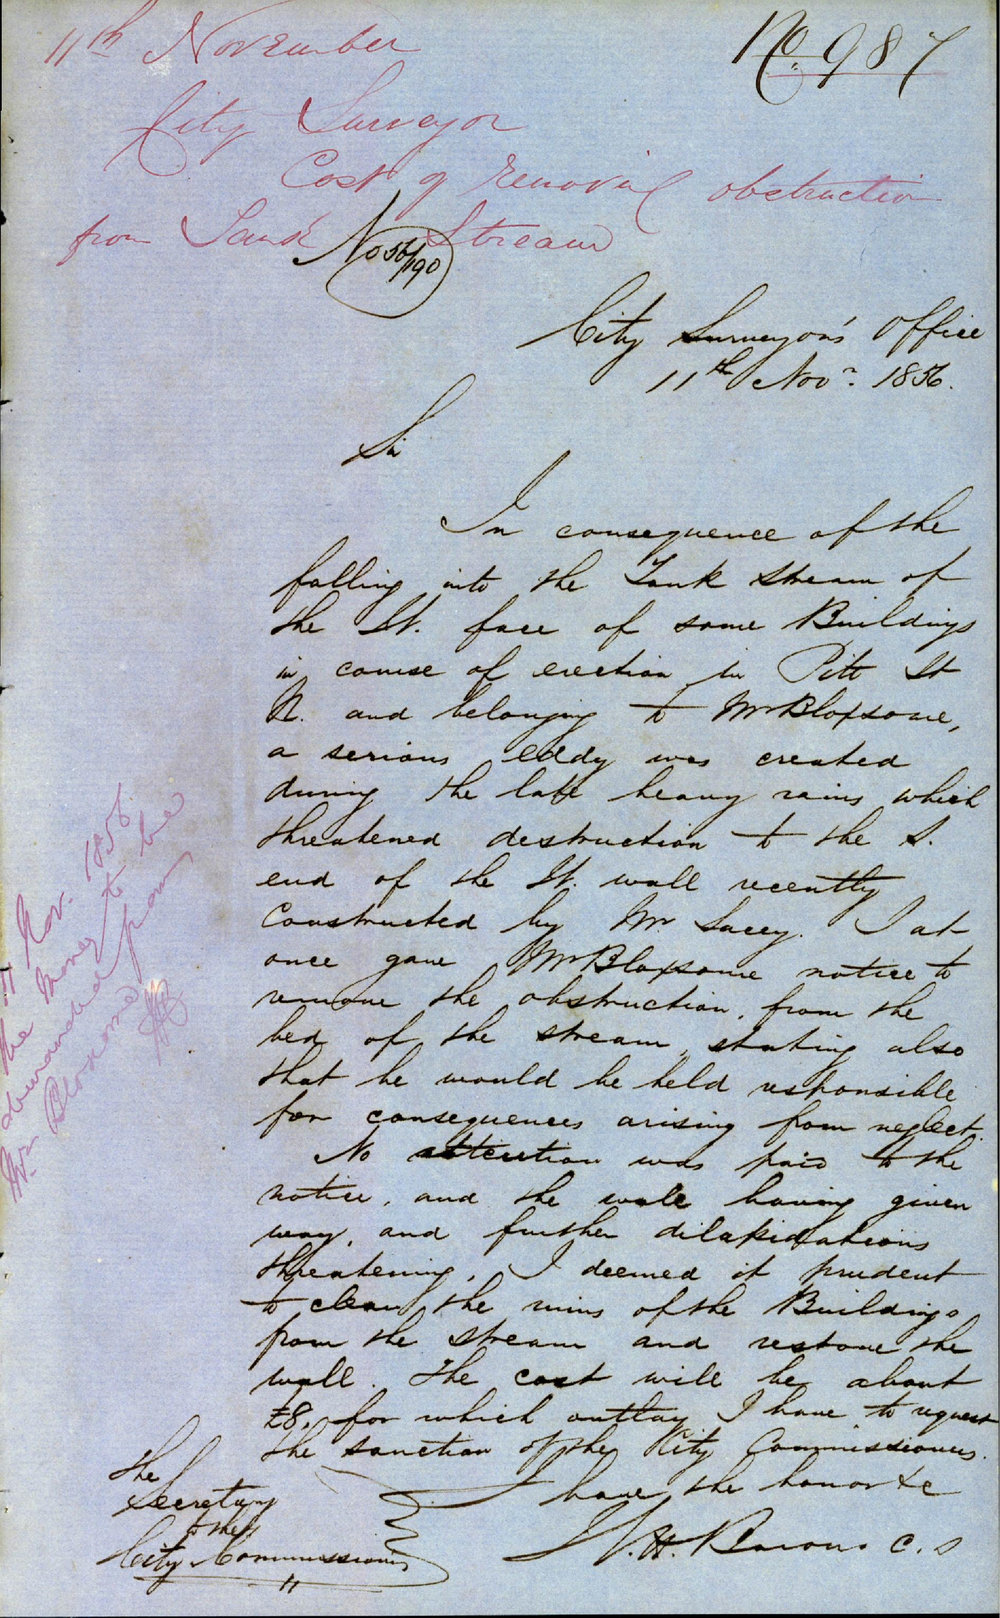 No. 987
11th November
City Surveyor
Cost of removal obstruction
from Tank Stream
No 56/190
City Surveyor's Office
11th Novr. 1856.
Sir
In consequence of the
falling into the Tank Stream of
the W. face of some Buildings
in course of erection in Pitt St
N. and belonging to Mr Bloxsome,
a serious eddy was created
during the late heavy rains which
threatened destruction to the S.
end of the W. wall recently
constructed by Mr Lacey. I at
once gave Mr Bloxsome notice to
remove the obstruction, from the
bed of the stream, stating also
that he would be held responsible
for consequences arising from neglect.
No attention was paid to the
notice, and the wall having given
way, and further dilapidations
threatening, I deemed it prudent
to clear the ruins of the Buildings
from the stream and restore the
wall. The cost will be about
£8, for which outlay I have to request
the sanction of the City Commissioners.
I have the honor &c
W. H. C. S
The
Secretary
to the
City Commissioners
11 Nov. 1856.
The money to be
demanded from
Mr Bloxsome